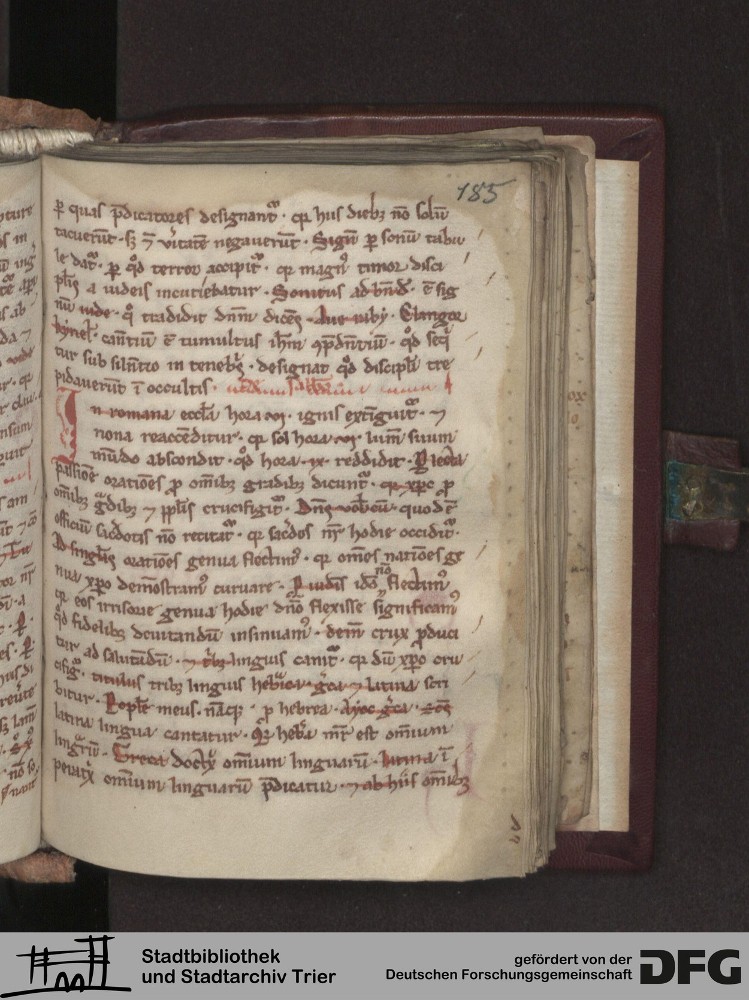 185
ꝑ quas p̄dicatores designant᷑ · qꝛ hiis dieb; nō solū
tacuerūt · sꝫ ⁊ v̄itatē negauerūt · Signū ꝑ sonū tabu
le dat᷑ · ꝑ qd̄ terror accipit᷑ · qꝛ magn᷒ timor disci
plīs a iudeis incutiebatur · Sonitus
nū iude · q̇ tradidit dn̄m dicēs · Aue raby · Clangor
cantiū ē tumultus ih̄m
tur sub silēntio in tenebris · designat qd̄ discipli tre
pidauerūt ī occultis ·
In romana eccl̄a hora · vi · ignis extīguit᷑ · ⁊
nona reaccēditur · qꝛ sol hora · vi · lum̄ suum
mūdo abscondit · qd̄ hora · ix · reddidit · P̄lecta
passiōe oratiōes ꝓ om̄ib; gradib; dicunt᷑ · qꝛ xp̄c ꝓ
om̄ib; g̈dib; ⁊ pp̄lis crucifigit᷑ · Dn̄s vobcū · quod ē
officiū sac̄dotis nō recitat᷑ · qꝛ sac̄dos nr̄ hodie occidit᷑ ·
Ad singl̄as oratiōes genua flectim᷒ · qꝛ om̄es natiōes ge
nua xp̄o dem̄ostram᷒ curuare · P iudeis idō nō flectim᷒
qꝛ eos irrisorie genua hodie dn̄o flexisse significam᷒
qd̄ fidelib; deuitandū insinuam᷒ · dein̄ crux ꝓduci
tur ad salutādū · ⁊ trib; linguis canit᷑ · qꝛ dū xp̄o cru
cifig᷑ · titulus trib; linguis hebraica · g̈ca ⁊ latina scri
bitur · Popl̄e meus · nāqꝫ · ꝓ hebrea · Ayos g̈ca · sc̄s
latina lingua cantatur · Qꝛ heb̄a mr̄ est omnium
lingarū · Greca doctꝝ om̄ium linguarū · latina ī
peratꝝ om̄ium linguarū p̄dicatur · ⁊ ab hiis om̄ib;
Stadtbibliothek
und Stadtarchiv Trier
gefördert von der
Deutschen Forschungsgemeinschaft
DFG